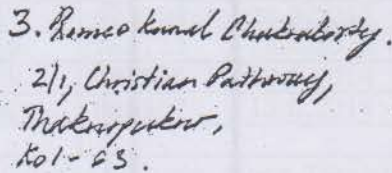 3. Romeo Kamal Chakraborty.
2/1, Christian Pathway,
Thakurpukur,
Kol - 63.